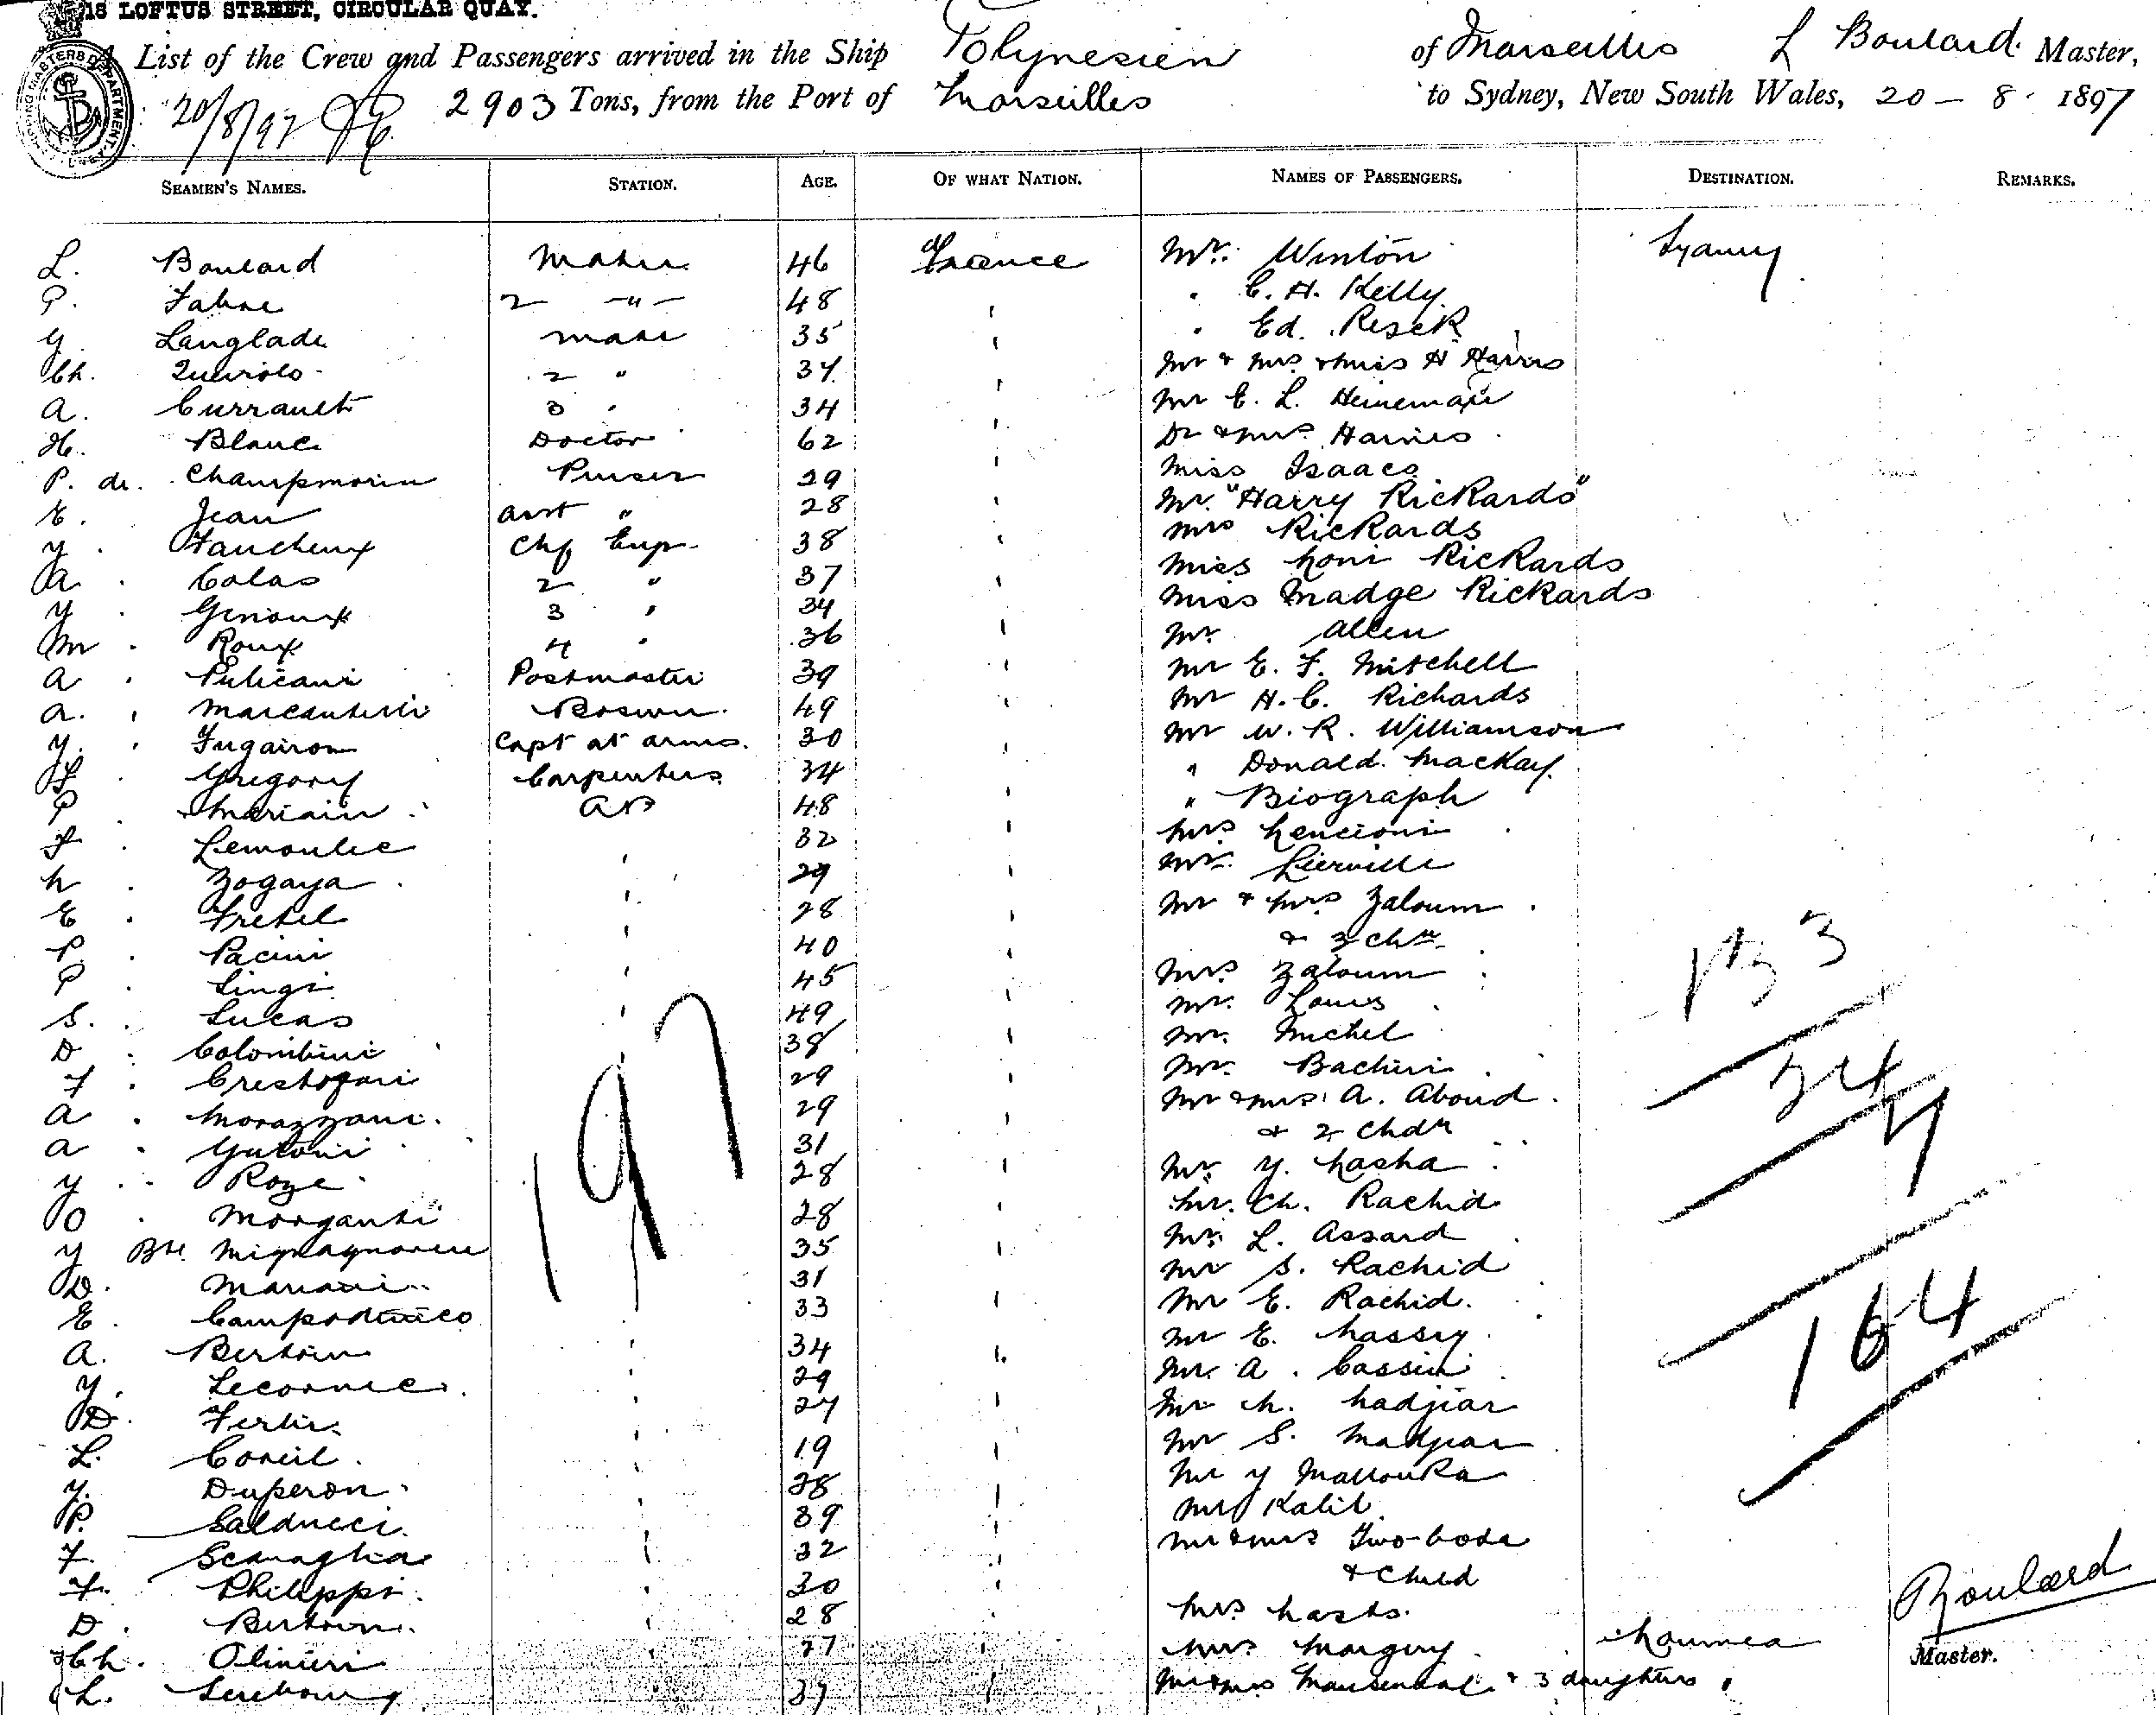 18 LOFTUS STREET, CIRCULAR QUAY.
A List of the Crew and Passengers arrived in the Ship Polynesien of Marseilles L Boulard Master,
20/8/97 2903 Tons, from the Port of Marseilles to Sydney, New South Wales, 20 - 8 - 1897
SEAMEN'S NAMES. STATION. AGE. OF WHAT NATION. NAMES OF PASSENGERS. DESTINATION. REMARKS.
L. Boulard Master 46 France Mr. Winton Sydney
P. Fabre 2 -"- 48 " C. H. Kelly
G. Langlade Mate 35 " Ed. Resek
Ch. 2 " 34 Mr & Mrs & Miss H Harris
A. Currault 3 " 34 Mr E. L. Heineman
H. Blanc Doctor 62 Dr & Mrs Haines
P. de Champmorin Purser 29 Miss Isaacs
E. Jean Asst " 28 Mr. "Harry Rickards"
Y. Faucheux Chf Eng. 38 Mrs Rickards
A. Colas 2 " 37 Miss Noni Rickards
Y. Genoux 3 " 34 Miss Madge Rickards
M. Roux 4 " 36 Mr. Allen
A. Pulicani Postmaster 39 Mr E. F. Mitchell
A. Marcantelli Boswn. 49 Mr H. C. Richards
Y. Fugairon Capt at arms. 30 Mr W. R. Williamson
Gregory Carpenters 34 " Donald Mackay
P. Meriain AB 48 " Biograph
F. Lemoulec 32 Mrs Lencioni
N. Zogaya 29 Mr. Lierville
E. Fretel 28 Mr & Mrs Zaloum
P. Pacini 40 & 3 chn
P. Lingi 45 Mrs Zaloum
S. Lucas 49 Mr. Louis
D. Colombini 38 Mr. Michel
F. Crestofari 29 Mr. Bachiri
A. Morazzani 29 Mr & Mrs A. Aboud
A. Gutoni 31 & 2 chdn
Y. Roze 28 Mr. Y. Nasha
O. Morganti 28 Mr. Ch. Rachid
Y Bte 35 Mr. L. Assard
D. Mariani 31 Mr S. Rachid
E. Campodonico 33 Mr E. Rachid.
A. Bertoin 34 Mr E. Nassry
Y. Lecornec 29 Mr. A. Cassin
D. Ferlir 27 Mr Ch. Nadjiar
L. Coreil 19 Mr S. Madjiar
Y. Duperon 28 Mr Y Mallouka
P. Balducci 39 Mr Kalil
F. Scanaglia 32 Mr & Mrs
F. Philippi 30 & Child
D. Bertoin 28 Mrs
Ch. Olinieri 27 Mrs Margery Noumea
L. 37 Mr & Mrs & 3 daughters "
197
153
34
7
164
Boulard
Master.